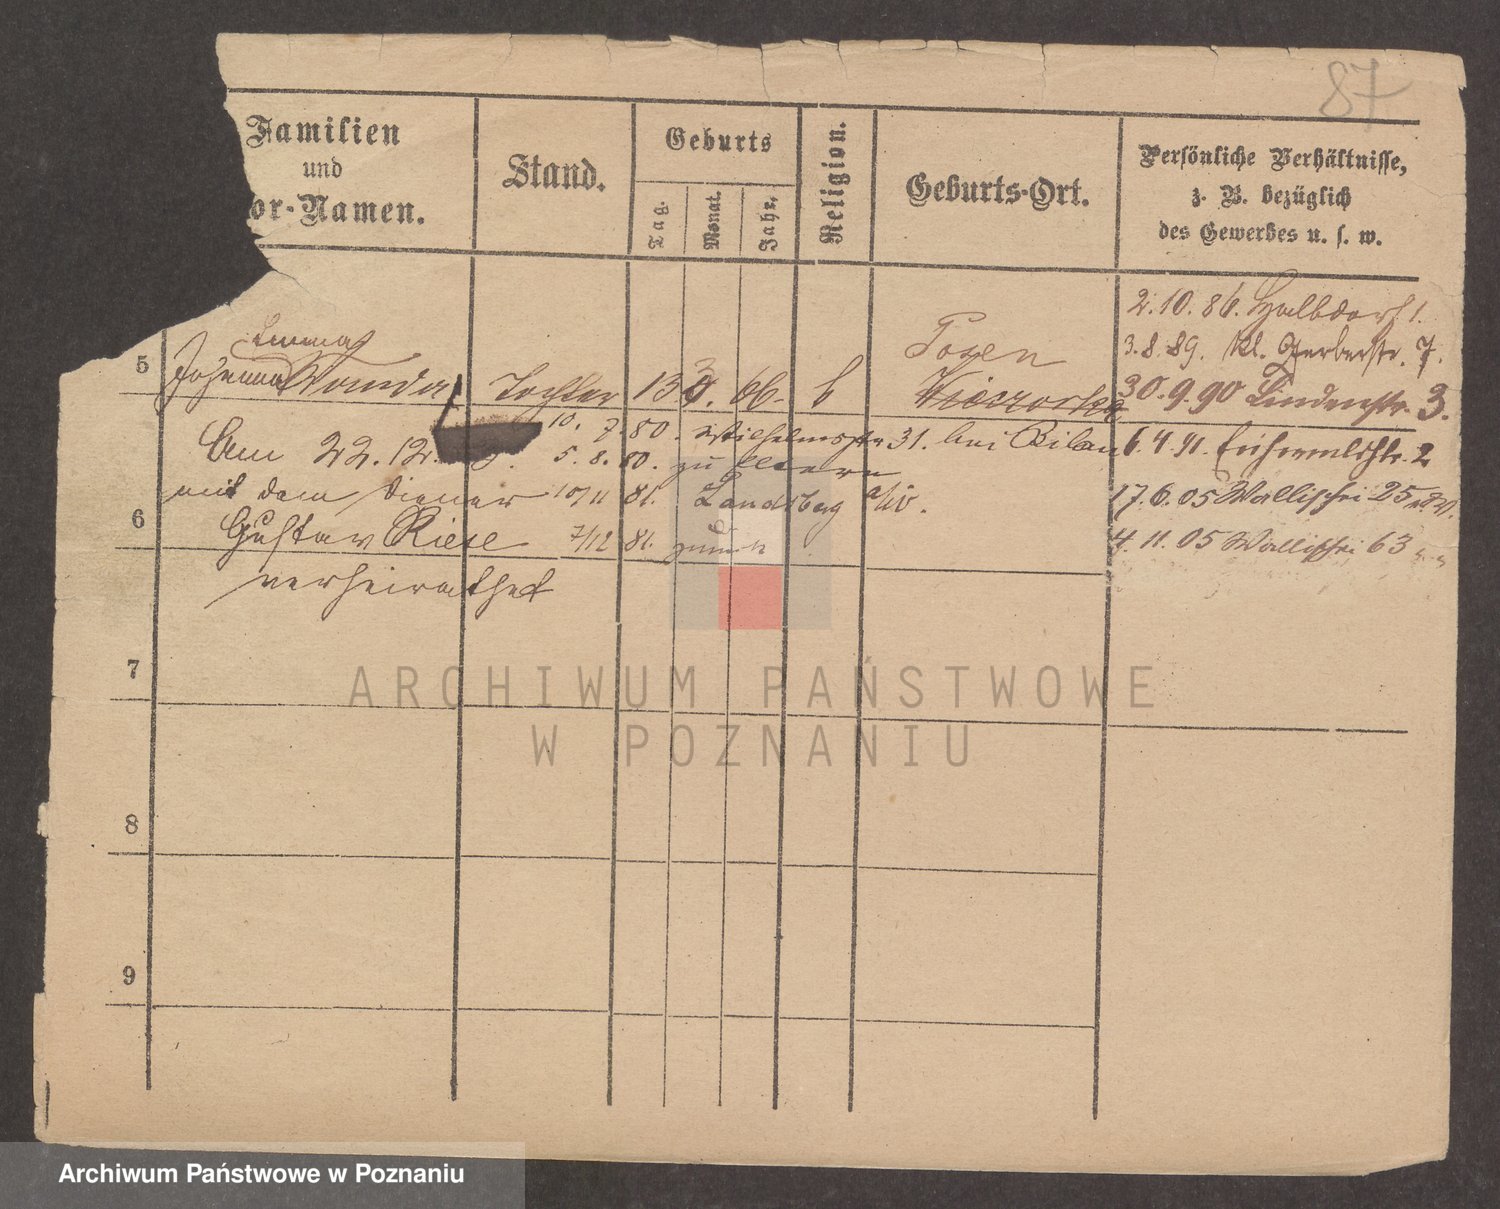 87
Familien
und
or-Namen.
Stand.
Geburts
Tag.
Monat.
Jahr.
Religion.
Geburts-Ort.
Persönliche Verhältnisse,
z. B. bezüglich
des Gewerbes u. s. w.
2.10.86. Halbdorf 1.
Emma
Posen
3.8.89. Kl. Gerberstr. 7.
5
Johanna Wanda
Tochter 13 3. 66.
30.9.90 Lindenstr. 3.
10. 7. 80. Wilhelmsstr 31. bei Bilau
6.4.91. 2
Am 22.12.
5. 8. 80. zu Eltern
mit dem Diener
10/11 81. Landsberg a/W.
17.6.05 Wallischei 25
6
Gustav Riese
7/12 81. zurück
4.11.05 Wallischei 63
verheirathet
7
8
9
ARCHIWUM PAŃSTWOWE
W POZNANIU
Archiwum Państwowe w Poznaniu